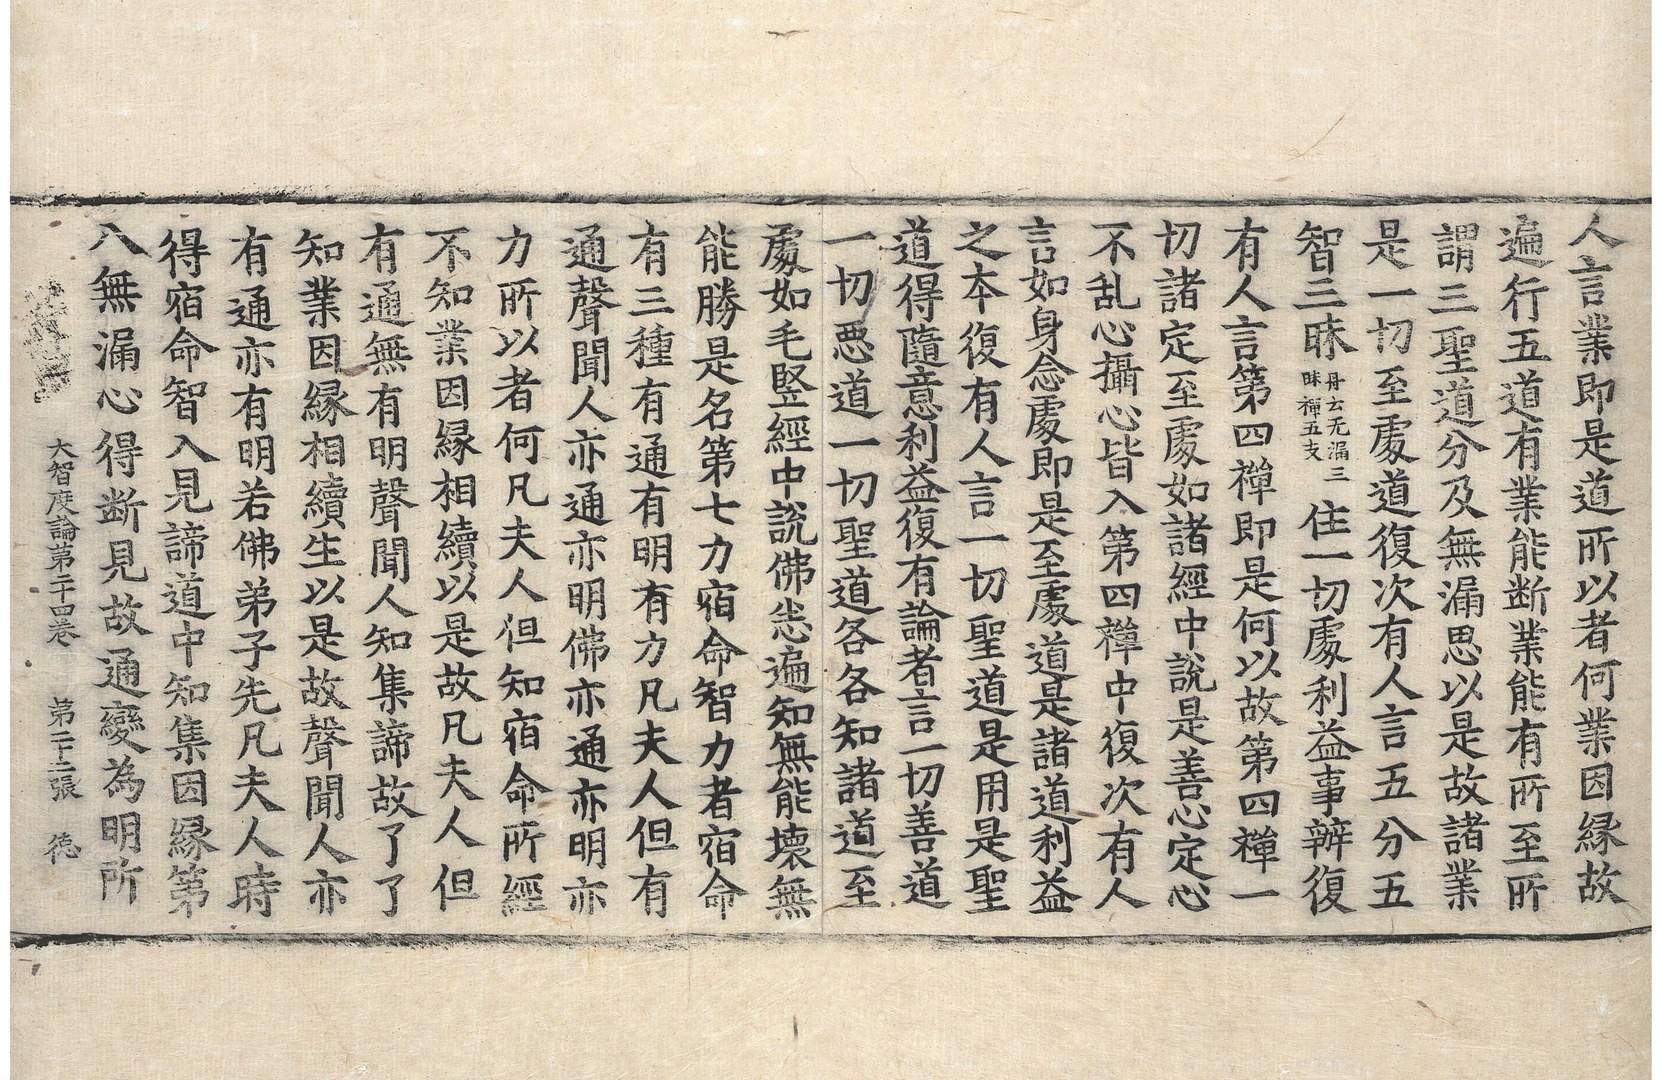 人言業即是道所以者何業因縁故
遍行五道有業能断業能有所至所
謂三聖道分及無漏思以是故諸業
是一切至處道復次有人言五分五
智三昧丹云无漏三昧禪五支住一切處利益事辦復
有人言第四禪即是何以故第四禪一
切諸定至處如諸經中說是善心定心
不乱心攝心皆入第四禪中復次有人
言如身念處即是至處道是諸道利益
之本復有人言一切聖道是用是聖
道得隨意利益復有論者言一切善道
一切悪道一切聖道各各知諸道至
處如毛竪經中說佛悉遍知無能壊無
能勝是名第七力宿命智力者宿命
有三種有通有明有力凡夫人但有
通聲聞人亦通亦明佛亦通亦明亦
力所以者何凡夫人但知宿命所經
不知業因縁相續以是故凡夫人但
有通無有明聲聞人知集諦故了了
知業因縁相續生以是故聲聞人亦
有通亦有明若佛弟子先凡夫人時
得宿命智入見諦道中知集因縁第
八無漏心得断見故通變為明所
大智度論第二十四卷 第二十二張 德